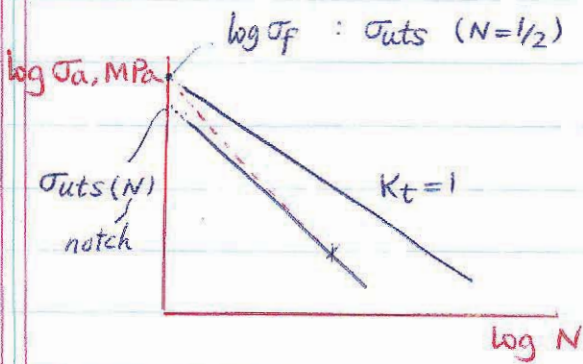 log σf : σuts (N=1/2)
log σa, MPa
σuts(N)
notch
Kt = 1
log N